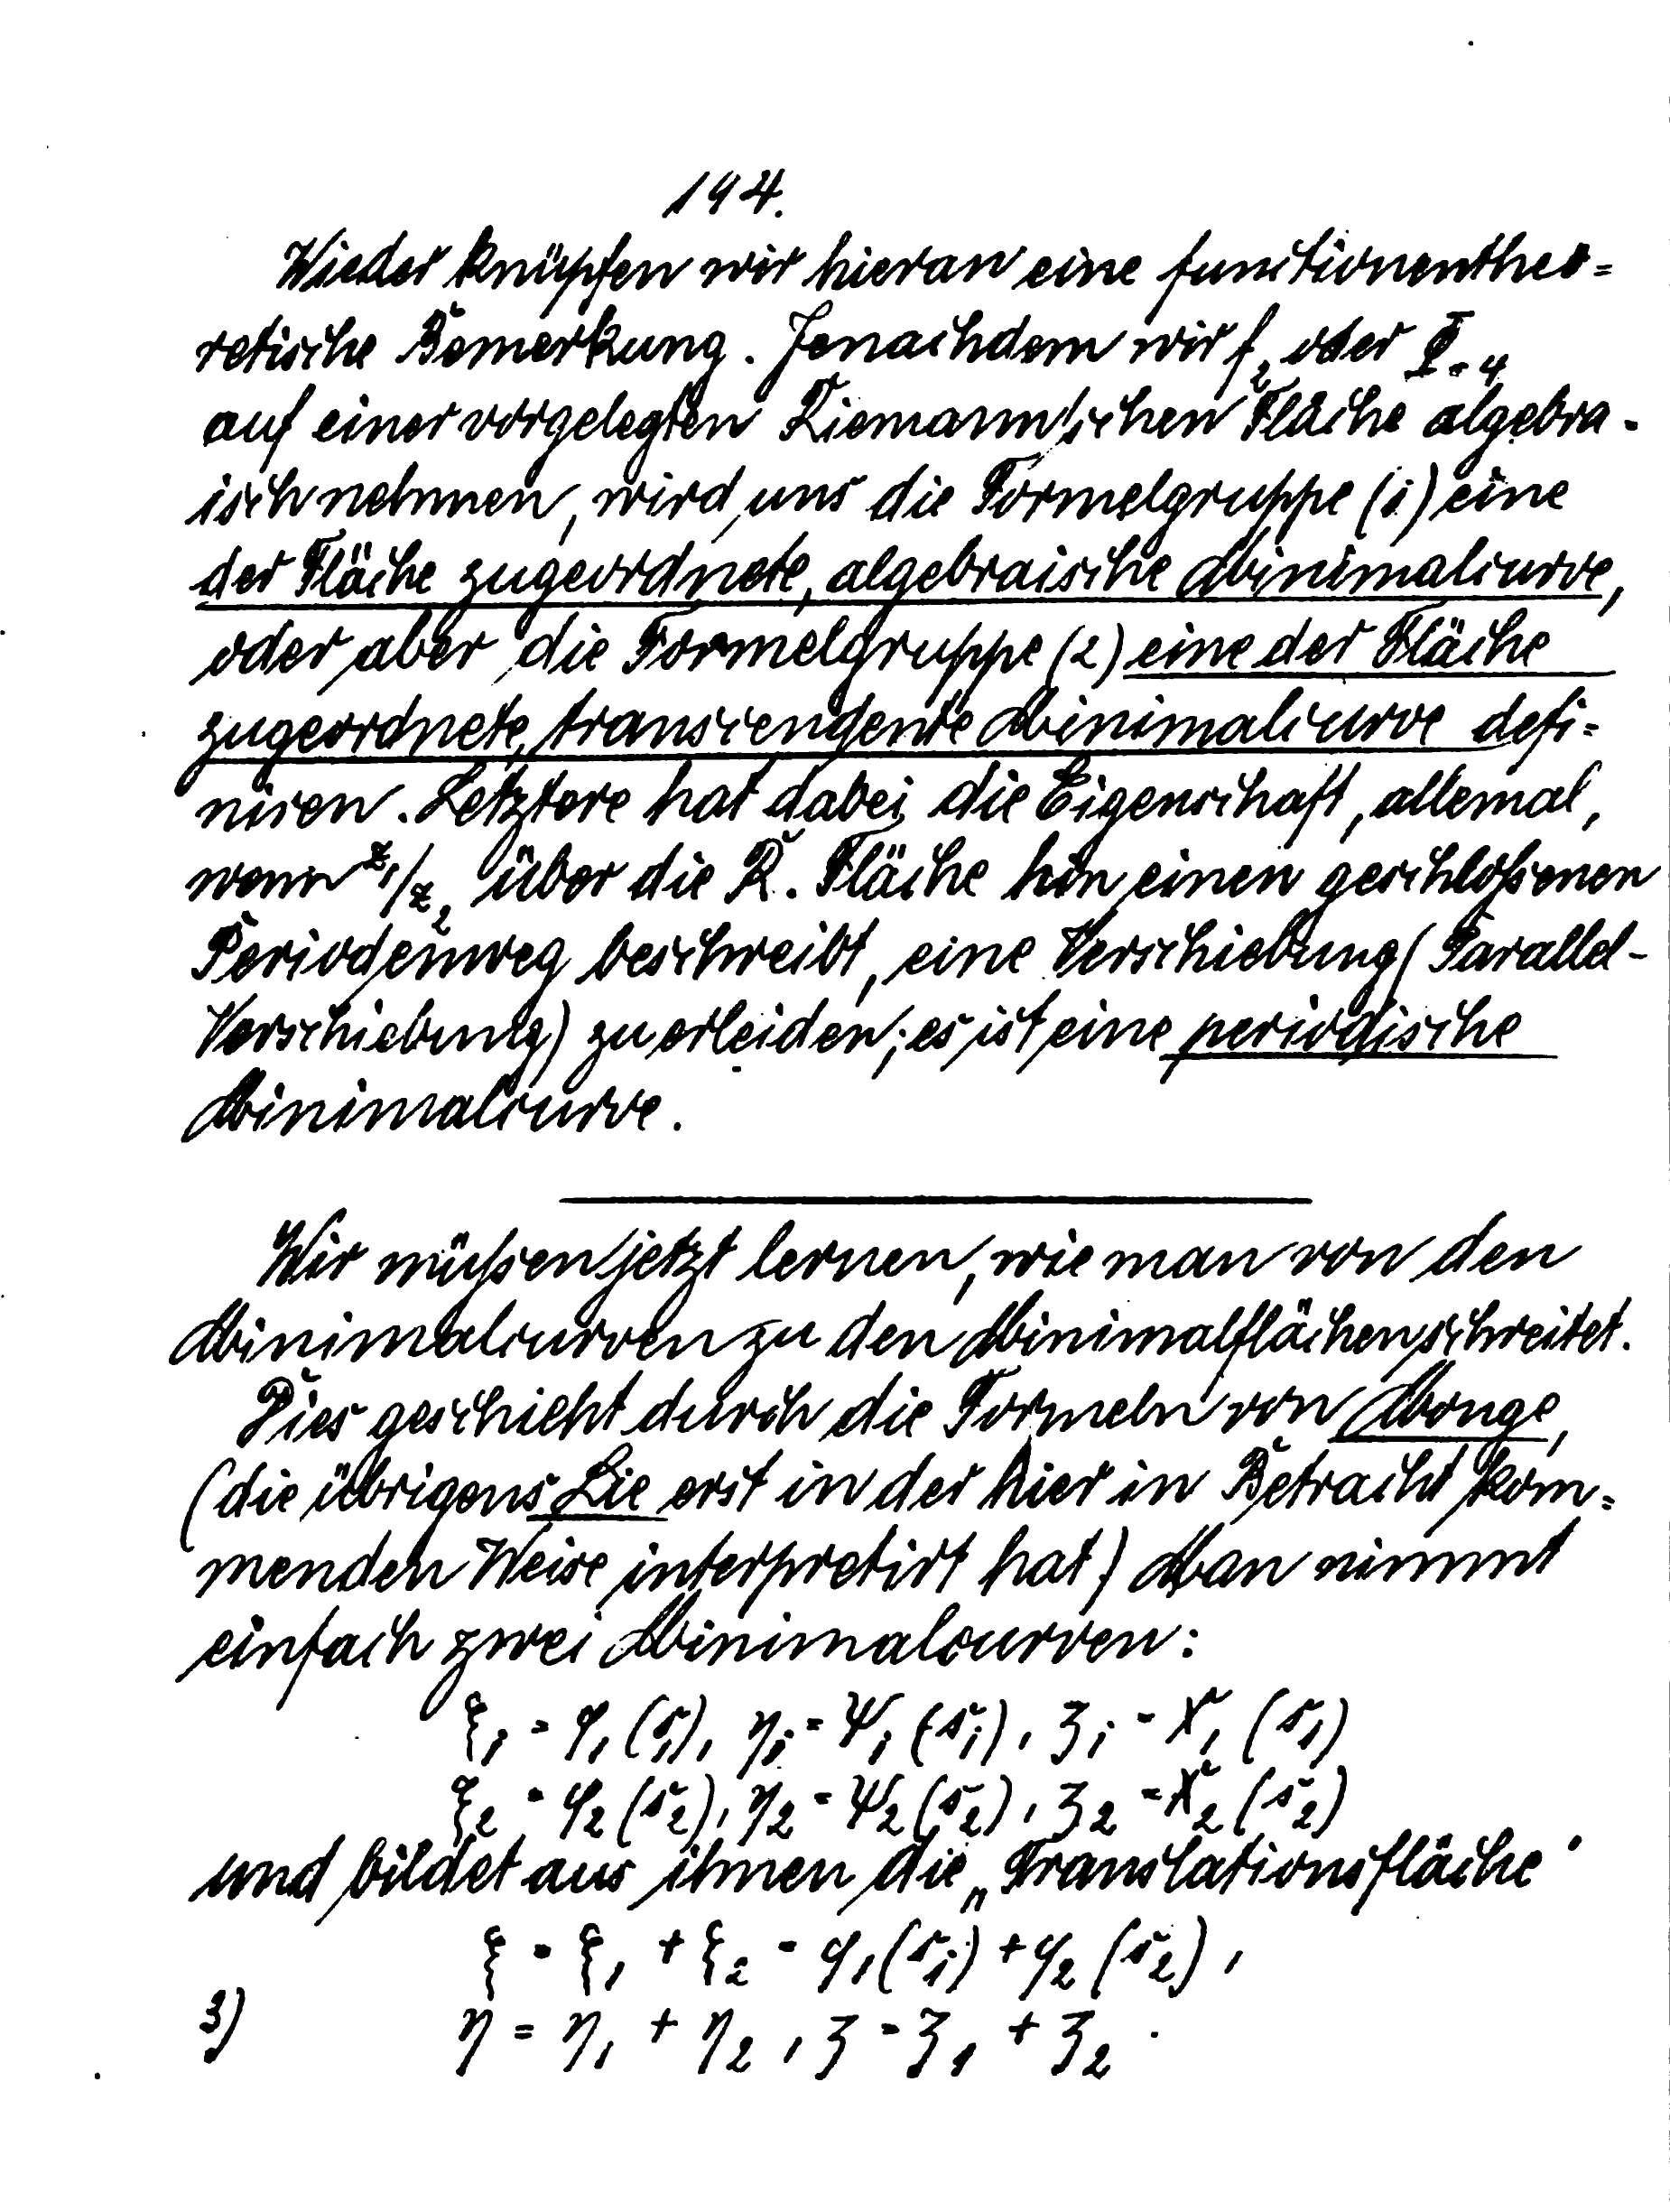 194.
Wieder knüpfen wir hieran eine functionentheo=
retische Bemerkung. Jenachdem wir f₂ oder Φ₋₄
auf einer vorgelegten Riemann'schen Fläche algebra-
isch nehmen, wird uns die Formelgruppe (1) eine
der Fläche zugeordnete, algebraische Minimalcurve,
oder aber die Formelgruppe (2) eine der Fläche
zugeordnete, transcendente Minimalcurve defi=
niren. Letztere hat dabei die Eigenschaft, allemal,
wenn z₁/z₂ über die R. Fläche hin einen geschloßenen
Periodenweg beschreibt, eine Verschiebung (Parallel-
Verschiebung) zu erleiden; es ist eine periodische
Minimalcurve.
Wir müßen jetzt lernen, wie man von den
Minimalcurven zu den Minimalflächen schreitet.
Dies geschieht durch die Formeln von Monge,
(die übrigens Lie erst in der hier in Betracht kom=
menden Weise interpretirt hat) Man nimmt
einfach zwei Minimalcurven:
ξ₁ = φ₁(s₁), η₁ = ψ₁(s₁), ζ₁ = χ₁(s₁)
ξ₂ = φ₂(s₂), η₂ = ψ₂(s₂), ζ₂ = χ₂(s₂)
und bildet aus ihnen die „Translationsfläche"
ξ = ξ₁ + ξ₂ = φ₁(s₁) + φ₂(s₂),
3) η = η₁ + η₂, ζ = ζ₁ + ζ₂.